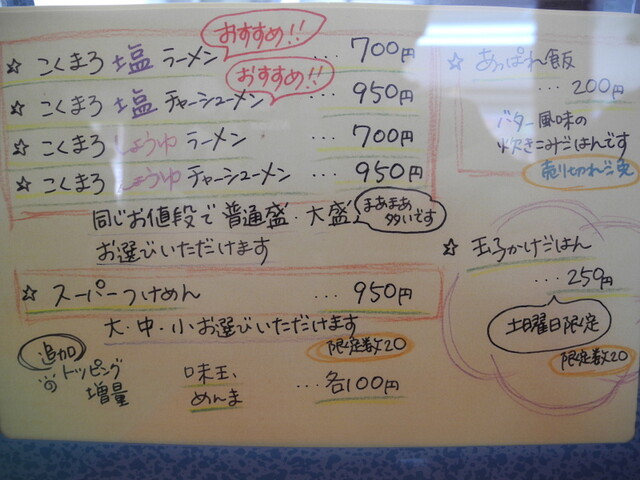 おすすめ!!
☆ こくまろ 塩 ラーメン ... 700円
おすすめ!!
☆ こくまろ 塩 チャーシューメン ... 950円
☆ こくまろ しょうゆ ラーメン ... 700円
☆ こくまろ しょうゆ チャーシューメン ... 950円
同じお値段で 普通盛・大盛
まあまあ
多いです
お選びいただけます
☆ スーパーつけめん ... 950円
大・中・小お選びいただけます
限定数20
追加
トッピング
増量
味玉
めんま
... 各100円
☆ あっぱれ飯
... 200円
バター風味の
炊きこみごはんです
売り切れご免
☆ 玉子かけごはん
... 250円
土日曜日限定
限定数20